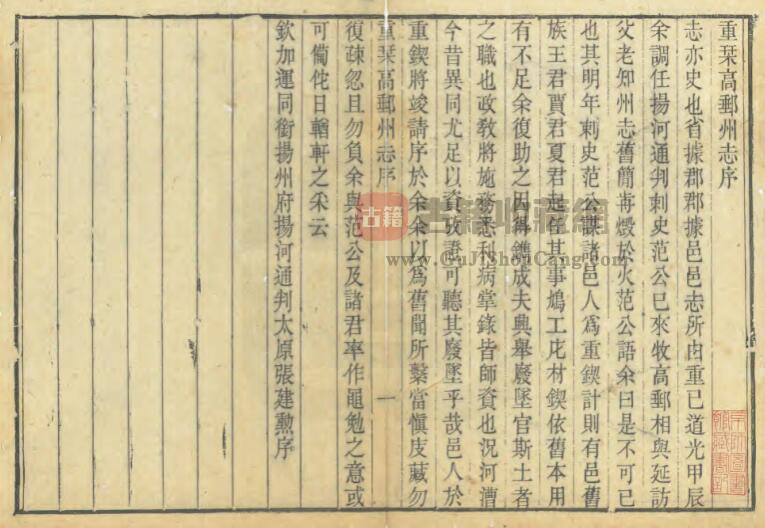 重栞高郵州志序
志亦史也省據郡郡據邑邑志所由重已道光甲辰
余調任揚河通判刺史范公已來牧高郵相與延訪
父老知州志舊簡耑燬於火范公語余曰是不可已
也其明年刺史范公謀諸邑人為重鍥計則有邑舊
族王君賈君夏君起任其事鳩工庀材鍥依舊本用
有不足余復助之因得鐫成夫典舉廢墜官斯土者
之職也政教將施務悉利病掌錄皆師資也況河漕
今昔異同尤足以資攷證可聽其廢墜乎哉邑人於
重鍥將竣請序於余余以為舊聞所繫當慎庋藏勿
重栞高郵州志序
一
復疎忽且勿負余與范公及諸君率作黽勉之意或
可備佗日輶軒之采云
欽加運同銜揚州府揚河通判太原張建勲序
古籍
古籍收藏網
www.GuJiShouCang.com